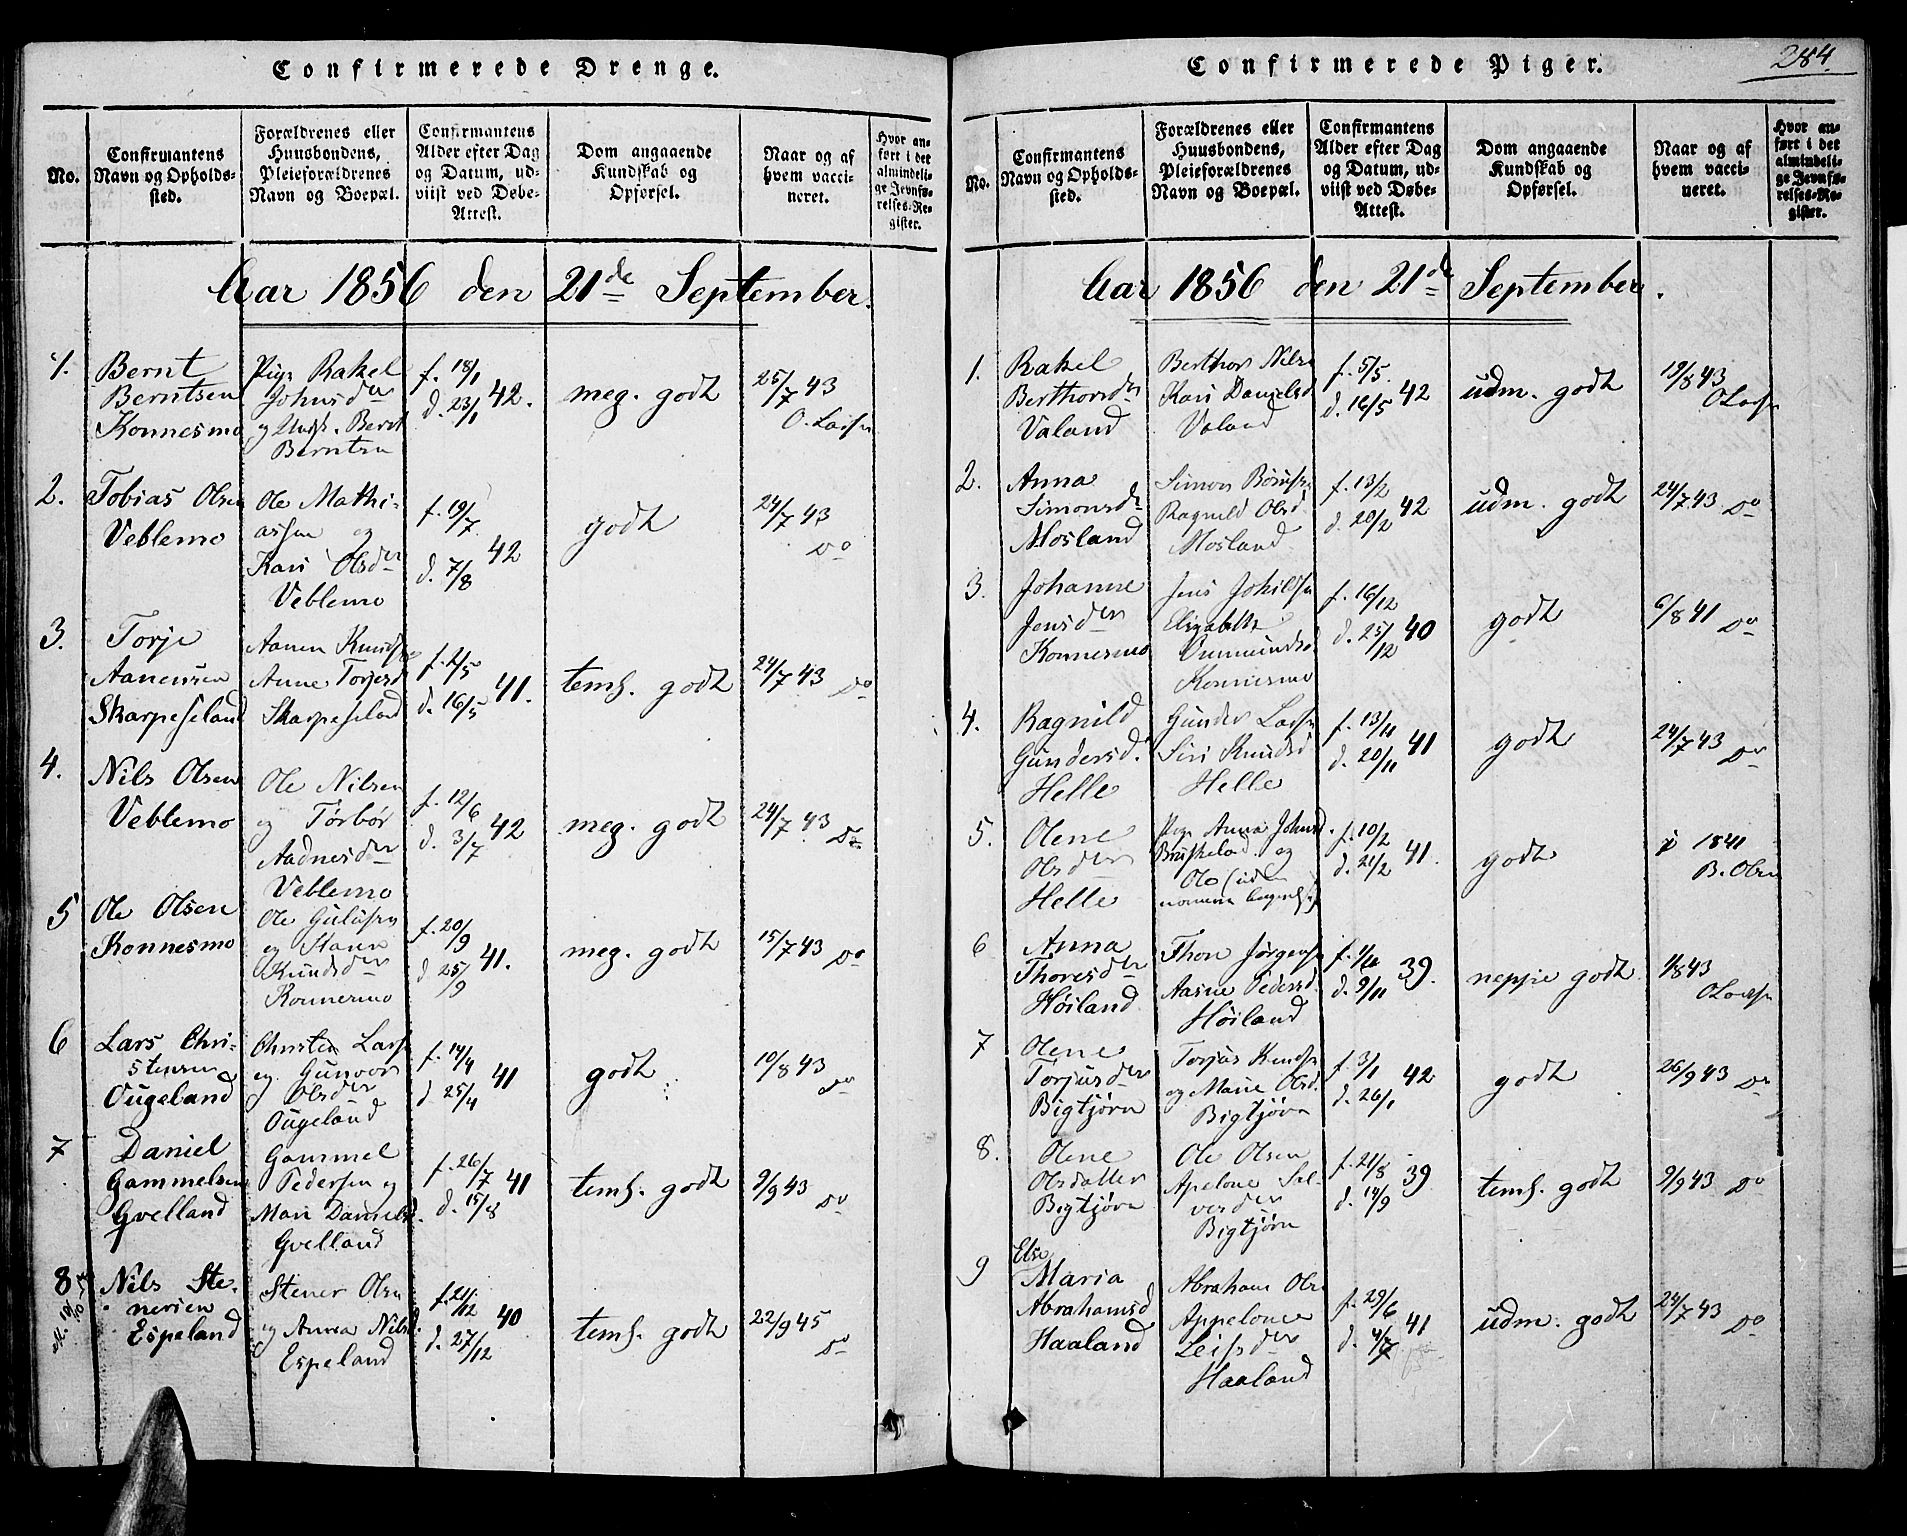 Confirmerede Drenge.
No.
Confirmantens
Navn og Opholds-
sted.
Forældrenes eller
Huusbondens,
Pleieforældrenes
Navn og Boepæl.
Confirmantens
Alder efter Dag
og Datum, ud-
viist ved Døbe-
Attest.
Dom angaaende
Kundskab og
Opførsel.
Naar og af
hvem vacci-
neret.
Hvor an-
ført i det
almindeli-
ge Jevnfø-
relses-Re-
gister.
Aar 1856 den 21de September.
1.
Bernt
Berntsen
Konnesmo
Pige Rakel
Johnsder
og Ungk. Bernt
Berntsen
f. 18/1
d. 23/1 42.
meg. godt
25/7 43
O. Larsen
2.
Tobias Olsen
Veblemo
Ole Mathi-
assen og
Kari Olsder
Veblemo
f. 19/7
d. 7/8 42
godt
24/7 43
Do
3.
Torje
Aanensen
Skarpeseland
Aanen Knudsen
Anne Torjesd
Skarpeseland
f. 2/5
d. 16/5 41.
temh. godt
24/7 43 Do
4.
Nils Olsen
Veblemo
Ole Nilsen
og Tørbør
Aadnesder
Veblemo
f. 12/6
d. 3/7 42
meg. godt
24/7 43 Do
5
Ole Olsen
Konnesmo
Ole
og
Knudsder
Konnesmo
f. 20/9
d 25/9 41.
meg. godt
15/7 43 Do
6
Lars Chri-
stensen
Ougeland
Christen Lars
og Gunvor
Olsder
Ougeland
f. 14/4
d 25/4 41
godt
10/8 43
Do
7
Daniel
Gammelsen
Gvelland
Gammel
Pedersen og
Mari Danielsd.
Gvelland
f. 26/7
d. 15/8 41
temh. godt
9/9 43
Do
8
Nils Ste-
nersen
Espeland
Stener Olsn
og Anna Nilsd.
Espeland
f. 21/12
d. 27/12 40
temh. godt
22/9 45
Do
284.
Confirmerede Piger.
No.
Confirmantens
Navn og Opholds-
sted.
Forældrenes eller
Huusbondens,
Pleieforældrenes
Navn og Boepæl.
Confirmantens
Alder efter Dag
og Datum, ud-
viist ved Døbe-
Attest.
Dom angaaende
Kundskab og
Opførsel.
Naar og af
hvem vacci-
neret.
Hvor an-
ført i det
almindeli-
ge Jevnfø-
relses-Re-
gister.
Aar 1856 den 21de September.
1.
Rakel
Berthorsdr
Valand
Berthor Nilsn
Kari Danielsd
Valand
f. 5/5.
d. 16/5 42
udm. godt
19/8 43
O Larsn
2.
Anna
Simonsdr
Mosland
Simon
Ragnild Olsd.
Mosland
f. 13/2
d. 20/2 42
udm. godt
24/7 43 Do
3.
Johanne
Jensder
Konnesmo
Jens
Elisabeth
Konnesmo
f. 16/12
d. 25/12 40
godt
6/8 41 Do
4.
Ragnild
Gundersd.
Helle
Gunder Larsn
Siri Knudsd
Helle
f. 13/11
d. 20/11 41
godt
24/7 43 Do
5.
Olene
Olsder
Helle
Pige Anna Johnsd.
og
Ole (uden
f. 10/2
d. 21/2 41.
godt
i 1841
B. Olsn
6
Anna
Thoresder
Høiland
Thore Jørgensn
Aasne Pedersd.
Høiland
d. 9/11 39.
neppe godt
1/8 43
O Larsn
7
Olene
Torjusder
Bigtjørn
Torjus Knudsn
og Marie Olsd.
Bigtjørn
f. 3/1
d. 26/1 42
godt
26/9 43 Do
8.
Olene
Olsdatter
Bigtjørn
Ole Olsen
Apelone Sal-
verder
Bigtjørn
f. 21/8
d. 14/9 39
temh. godt
9/9 43 Do
9
Else
Maria
Abrahamsd
Haaland
Abraham Olsn
Appelone
Leifsder
Haaland
f. 29/6
d. 4/7 41
udm. godt
24/7 43
Do